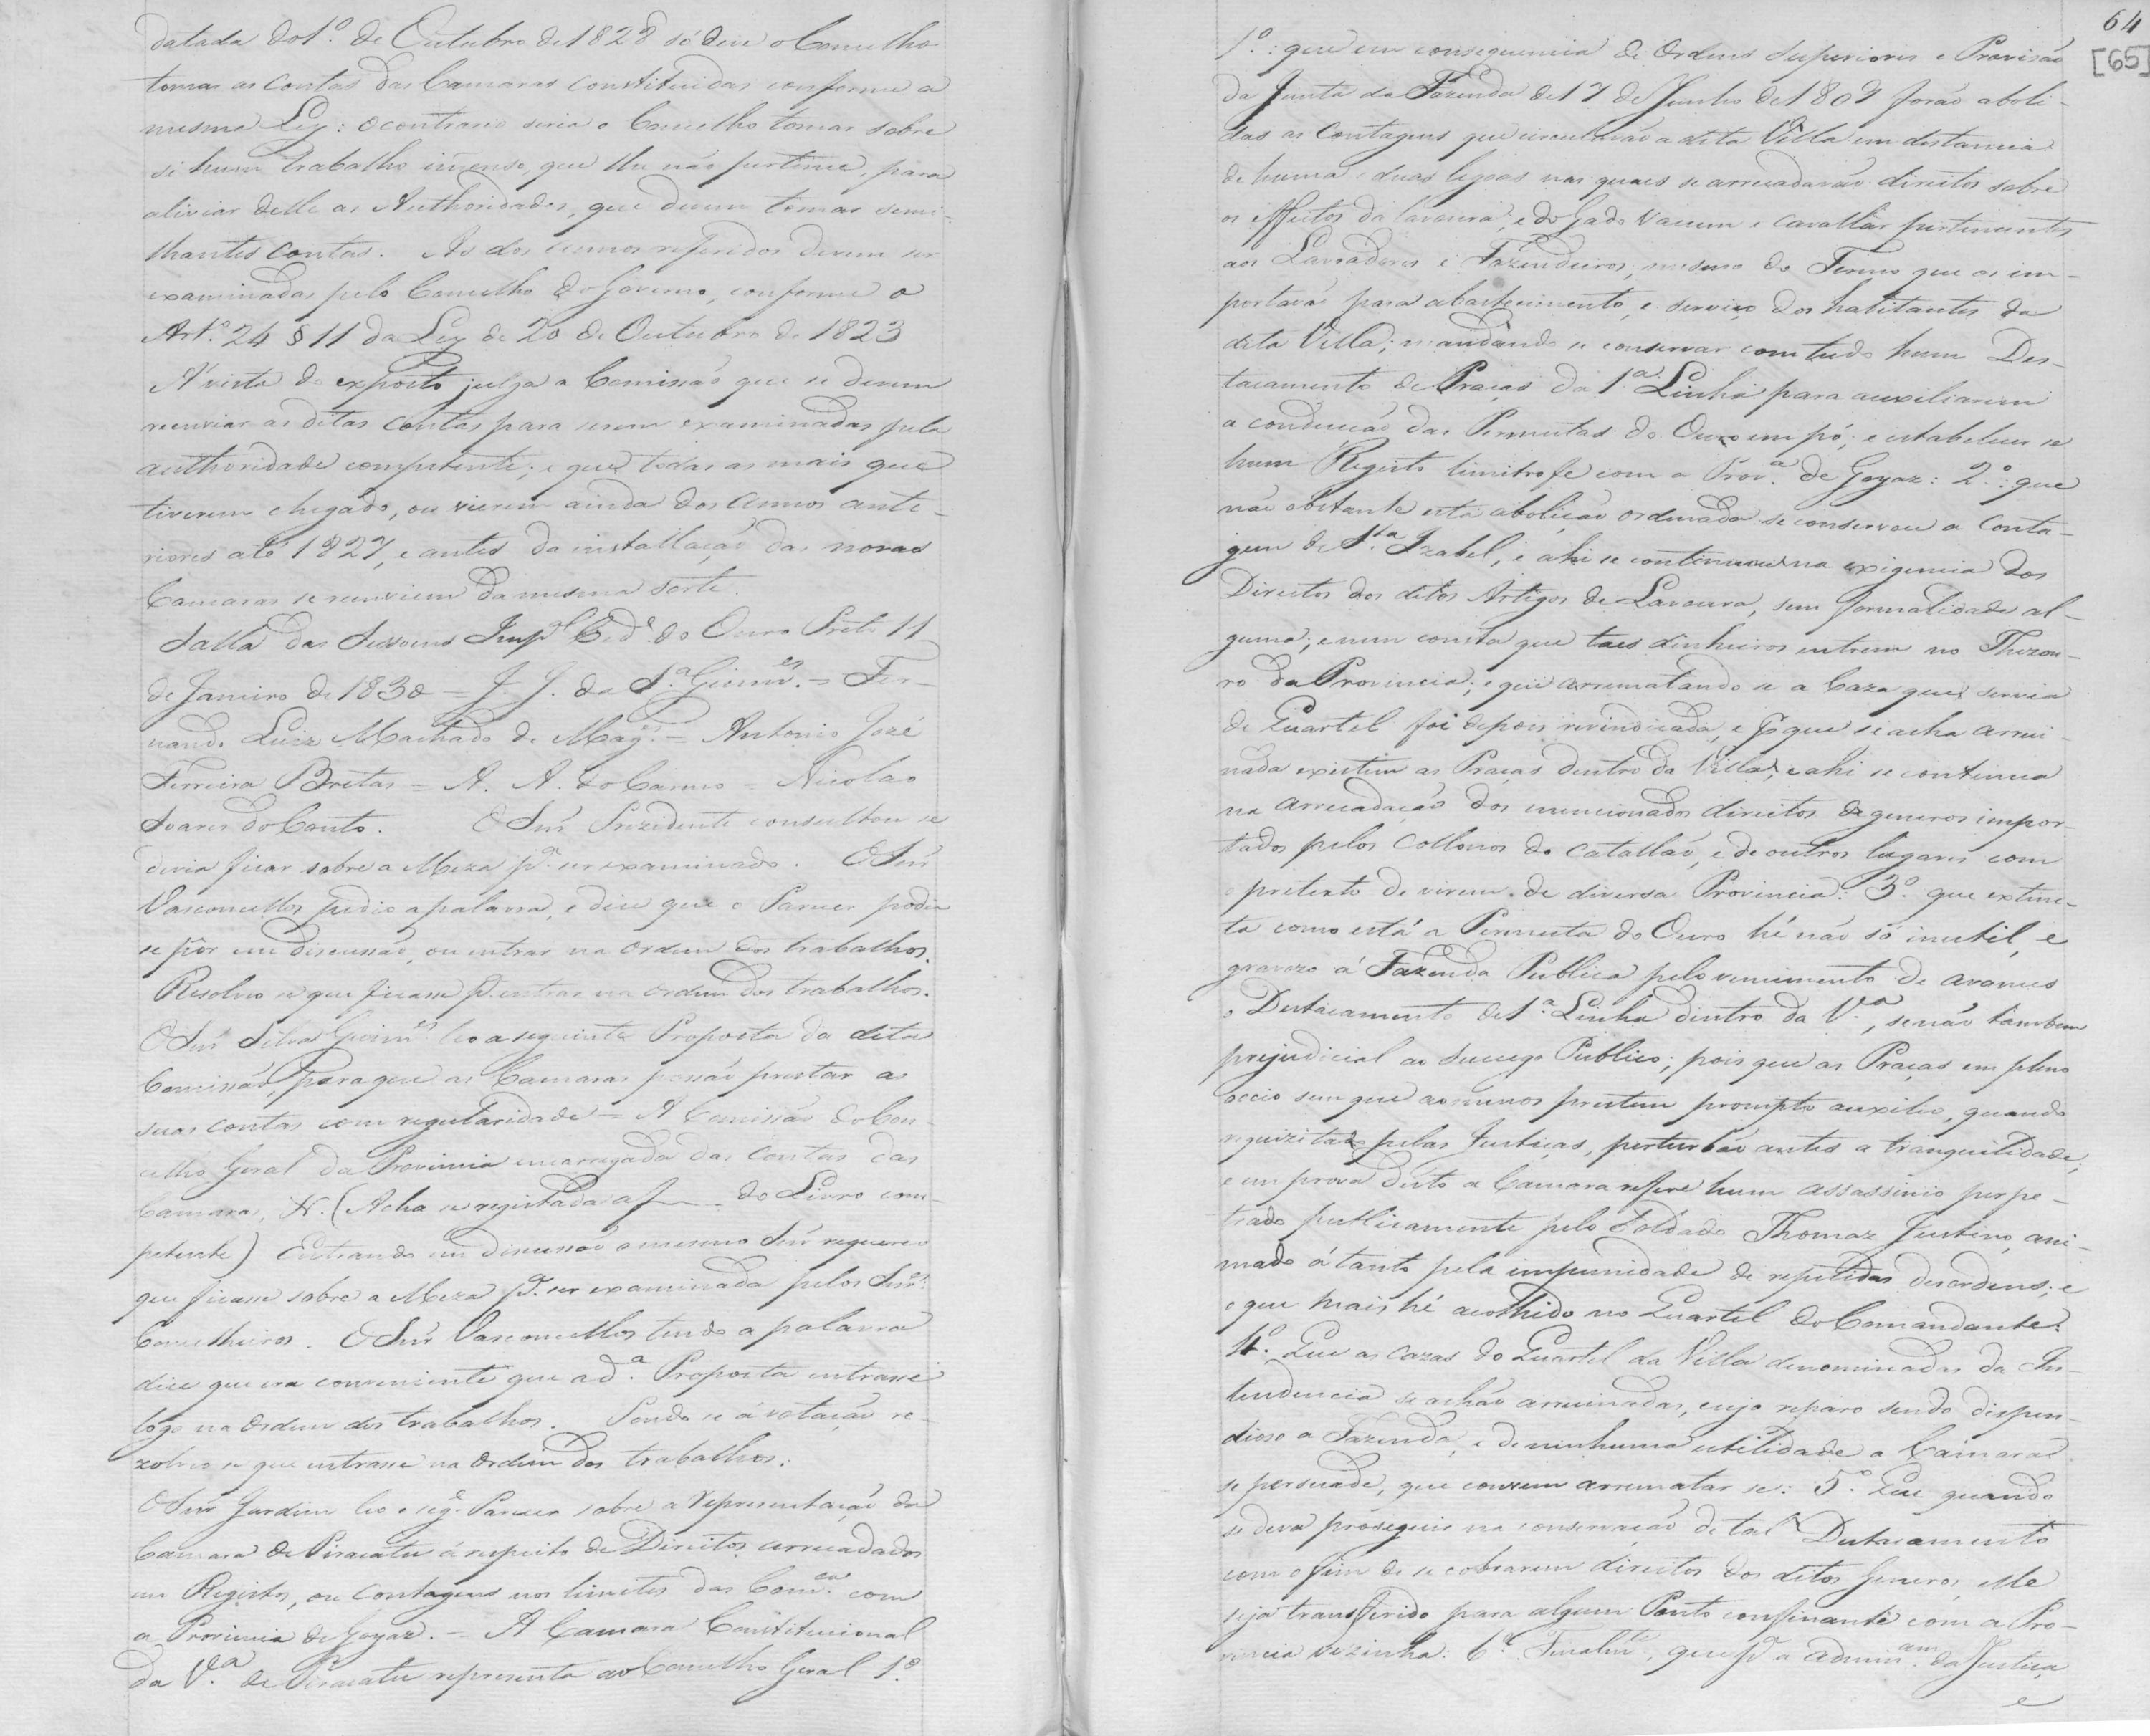 datada do 1º. de Outubro de 1828 só deve o Concelho
tomar as contas das Camaras constituidas conforme a
mesma Ley: o contrario seria o Concelho tomar sobre
si hum trabalho imenso, que lhe não pertence, para
aliviar delle as Authoridades, que devem tomar semi-
lhantes contas. As dos annos referidos devem ser
examinadas pelo Concelho do Governo, conforme o
Artº. 24 § 11 da Ley de 20 de Outubro de 1823
Á vista do exposto julga a Comissão que se devem
reenviar as ditas contas para serem examinadas pela
authoridade competente; e que todas as mais que
tiverem chegado, ou vierem ainda dos annos ante-
riores até 1827, e antes da installação das novas
Camaras se reenviem da mesma sorte.
Salla das Sessoens Impˡ Cidᵉ. do Ouro Preto 11
de Janeiro de 1830 = J. J. da Sª. Guimᵉˢ. = Fer-
nando Luiz Machado de Magᵉˢ. = Antonio José
Ferreira Bretas = A. A. do Carmo = Nicolao
Soares do Couto. O Snr̃ Prezidente consultou se
devia ficar sobre a Meza pᵃ. ser examinado. O Snr̃
Vasconcellos pedio a palavra, e disse que o Parecer podia
se pôr em discussão, ou entrar na ordem dos trabalhos.
Resolveo se que ficasse pᵃ. entrar na ordem dos trabalhos.
O Snr̃ Silva Guimᵉˢ leo a seguinte Proposta da dita
Comissão, para que as Camaras possão prestar as
suas contas com regularidade = A Comissão do Con-
celho Geral da Provincia encarregada das contas das
Camaras, &. (Acha se registrada a f do Livro com-
petente) Entrando em discussão o mesmo Snr̃ requereo
que ficasse sobre a Meza pᵃ. ser examinada pelos Snrᵉˢ.
Concelheiros. O Snr̃ Vasconcellos tendo a palavra
disse que era conveniente que a dᵃ. Proposta entrasse
logo na Ordem dos trabalhos. Pondo se á votação re-
zolveo se que entrasse na Ordem dos trabalhos.
O Snr̃ Jardim leo o segᵉ. Parecer sobre a representação da
Camara de Piracatu á respeito de Direitos arrecadados
em Registos, ou Contagens nos limites das Comᶜᵃ. com
a Provincia de Goyaz. = A Camara Constitucional
da Vᵃ. de Piracatu representa ao Concelho Geral 1º.
64
[65]
1º.: que em consequencia de Ordens Superiores e Provisão
da Junta da Fazenda de 17 de Junho de 1807 forão aboli-
das as Contagens que circulavão a dita Villa em distancia
de huma e duas legoas nas quaes se arrecadavão direitos sobre
os effeitos da lavoura, e do Gado Vacum e Cavallar pertencentes
aos Lavradores e Fazendeiros, mesmo do Termo que os im-
portavão para abastecimento, e serviço dos habitantes da
dita Villa; mandando se conservar com tudo hum Des-
tacamento de Praças da 1ª. Linha para auxiliarem
a conducção das Permutas do Ouro em pó; e estabelecer se
hum Registo limitrofe com a Provᵃ. de Goyaz: 2º.: que
não obstante esta abolição ordenada se conservou a Conta-
gem de Sᵗᵃ. Izabel, e ahi se continuou na exigencia dos
Direitos dos ditos Artigos de Lavoura, sem formalidade al-
guma; e nem consta que taes dinheiros entrem no Thezou-
ro da Provincia; e que arrematando se a Caza que servia
de Quartel foi depois revindicada, e pʳ que se acha arrui-
nada existem as Praças dentro da Villa, e ahi se continua
na arrecadação dos mencionados direitos de generos impor-
tados pelos Collonos do Catallão, e de outros lugares com
o pretexto de virem de diversa Provincia: 3º. que extinc-
ta como está a Permuta do Ouro hé não só inutil, e
gravozo á Fazenda Publica pelo vencimento de avances
o Destacamento de 1ª. Linha dentro da Vᵃ., senão tambem
prejudicial ao Socego Publico; pois que as Praças em pleno
occio sem que ao menos prestem prompto auxilio, quando
requizitado pelas Justiças, perturbão antes a tranquilidade;
e em prova disto a Camara refere hum assassinio perpe-
trado publicamente pelo Soldado Thomaz Justino, ani-
mado á tanto pela impunidade de repetidas desordens; e
o que mais hé acolhido no Quartel do Comandante:
4º. Que as cazas do Quartel da Villa denominadas da In-
tendencia se achão arruinadas, cujo reparo sendo dispen-
dioso a Fazenda, e de ninhuma utilidade a Camara
se persuade, que convem arrematar se: 5º. Que quando
se deva proseguir na conservação de tal Destacamento
com o fim de se cobrarem direitos dos ditos Generos, elle
seja transferido para algum Ponto confinante com a Pro-
vincia vezinha: 6º. Finalmᵗᵉ, que pᵃ a adminᵃᵐ. da Justiça
e